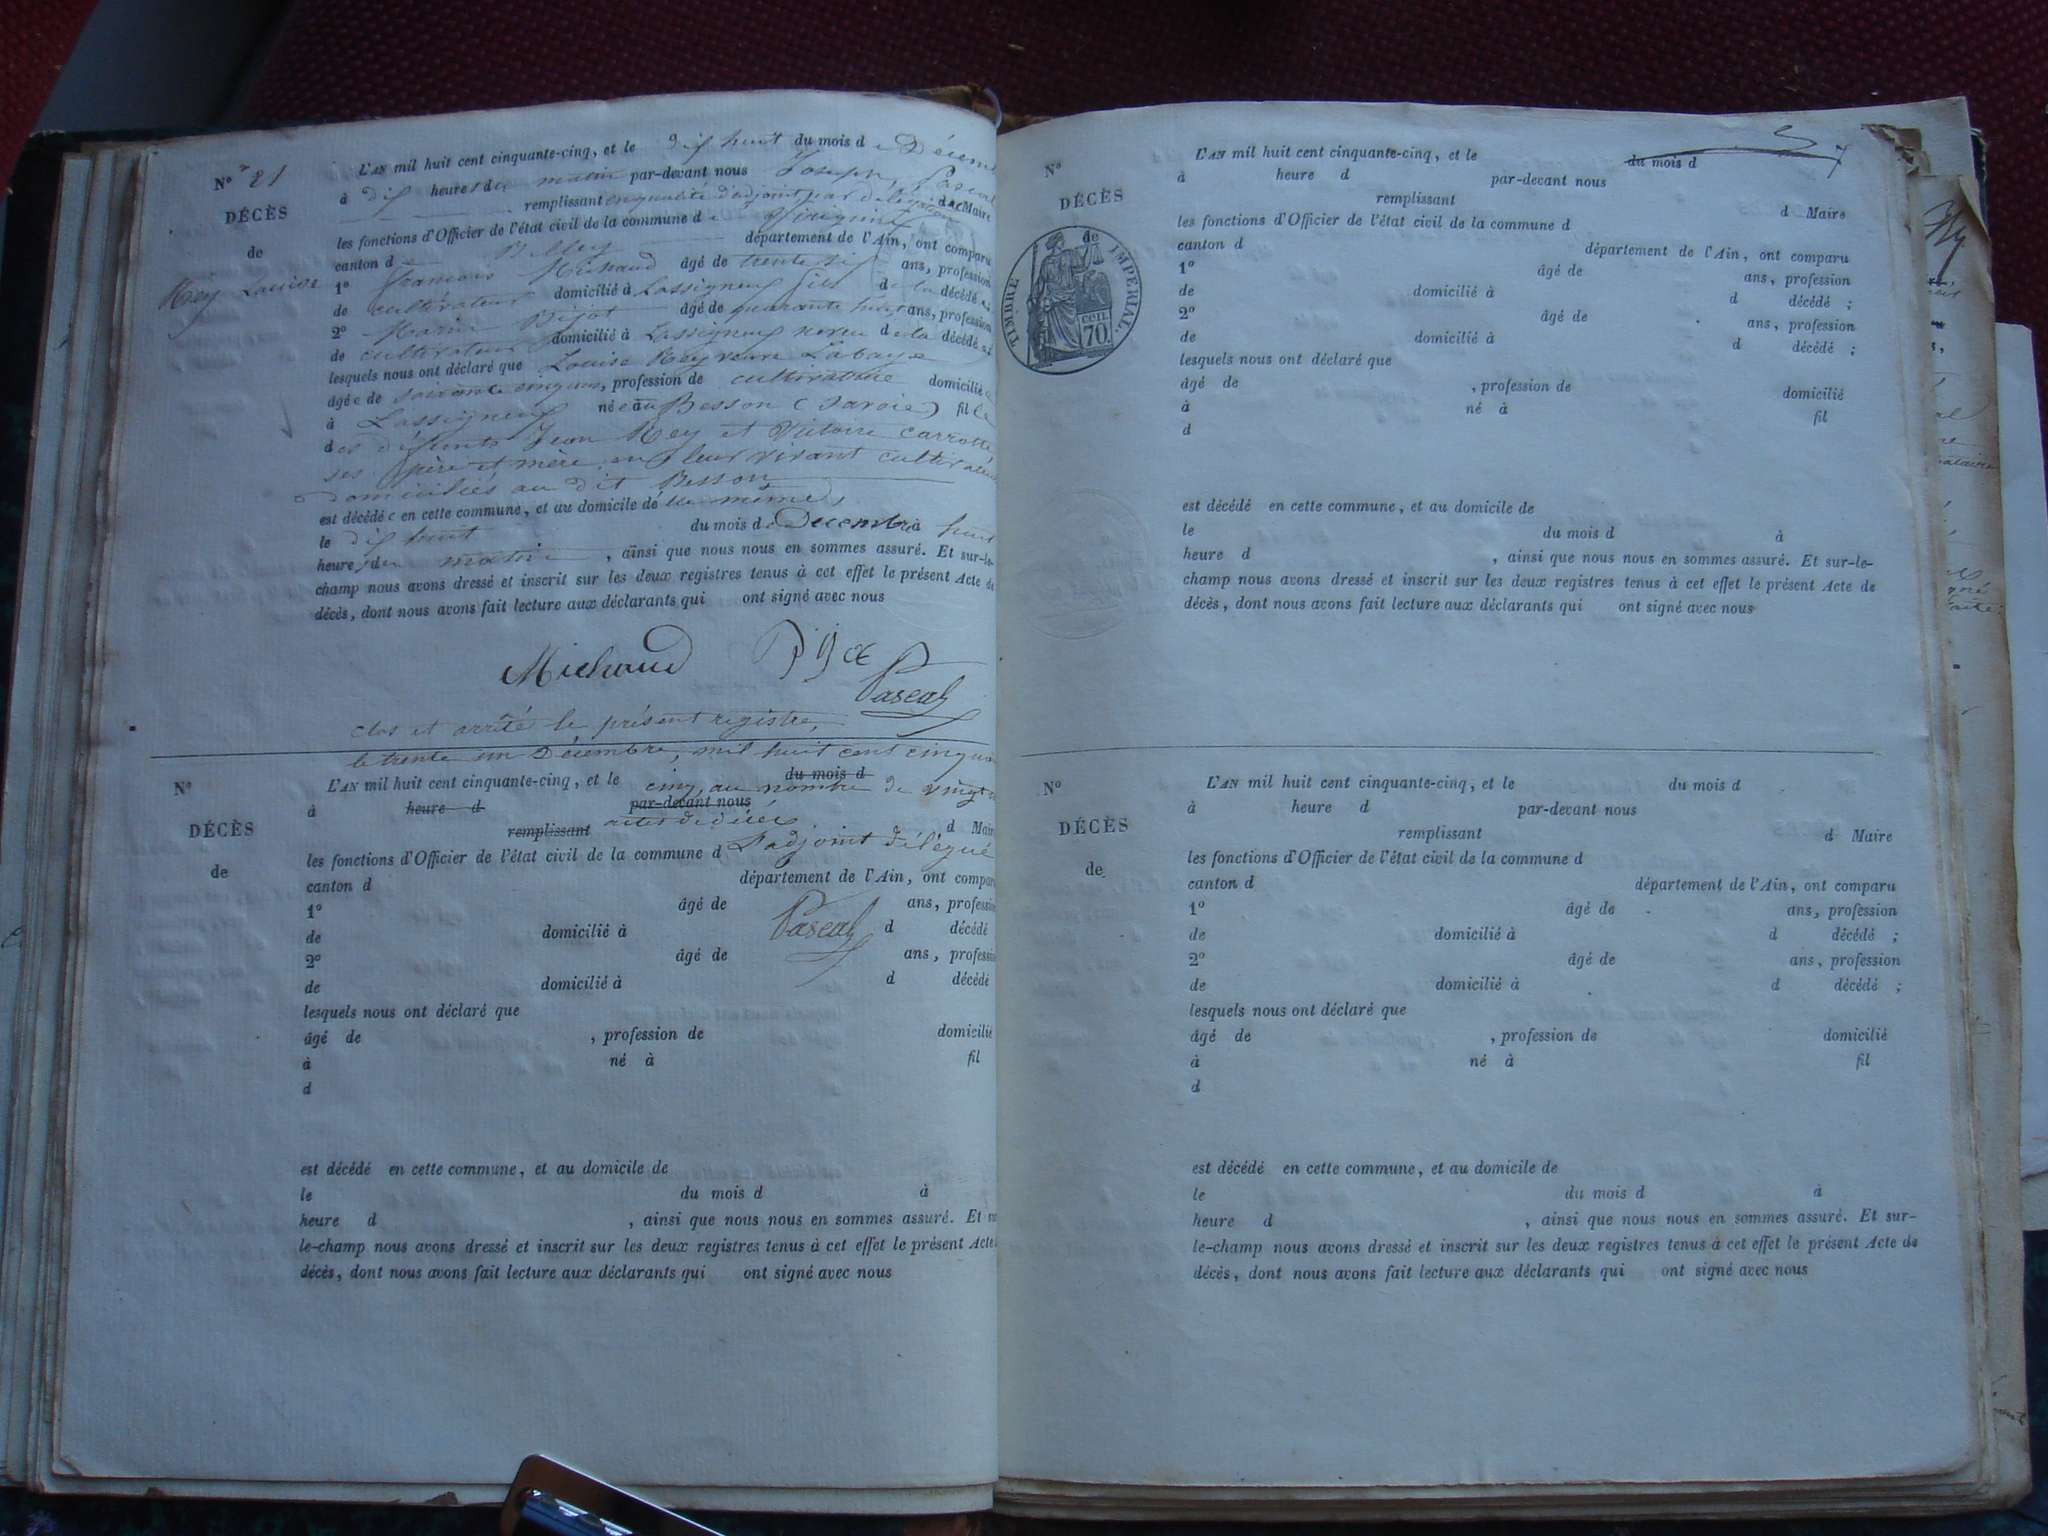 N° 21
DÉCÈS
de
Rey Louise
L'AN mil huit cent cinquante-cinq, et le dix huit du mois de Décemb
à dix heures du matin par-devant nous Joseph Pascal
remplissant en qualité d'adjoint par délégation du Maire
les fonctions d'Officier de l'état civil de la commune de
canton d Belley département de l'Ain, ont comparu
1° francois Michaud âgé de trente six ans, profession
de cultivateur domicilié à Lassigneux fils de la décédée
2° Marin Pijot âgé de quarante huit ans, profession
de cultivateur domicilié à Lassigneux neveu de la décédée
lesquels nous ont déclaré que Louise Rey veuve Labaye
âgée de soixante cinq ans, profession de cultivatrice domiciliée
à Lassigneux née au Besson (Savoie) fille
des défunts Jean Rey et Victoire Carrotte
ses père et mère en leur vivant cultivateurs
domiciliés au dit Besson
est décédée en cette commune, et au domicile d'elle même
le dix huit du mois de Décembre à huit
heures du matin, ainsi que nous nous en sommes assuré. Et sur-le-
champ nous avons dressé et inscrit sur les deux registres tenus à cet effet le présent Acte de
décès, dont nous avons fait lecture aux déclarants qui ont signé avec nous
Michaud Pascal
clos et arrêté le présent registre,
le trente un Décembre, mil huit cent cinquan
N°
DÉCÈS
de
L'AN mil huit cent cinquante-cinq, et le du mois d
cinq, au nombre de vingt
à heure d par-devant nous
actes de décès
remplissant d Maire
les fonctions d'Officier de l'état civil de la commune d L'adjoint délégué
canton d département de l'Ain, ont compar
1° âgé de ans, professio
de domicilié à d décédé
Pascal
2° âgé de ans, professio
de domicilié à d décédé
lesquels nous ont déclaré que
âgé de , profession de domicilié
à né à fil
d
est décédé en cette commune, et au domicile de
le du mois d à
heure d , ainsi que nous nous en sommes assuré. Et su
le-champ nous avons dressé et inscrit sur les deux registres tenus à cet effet le présent Acte
décès, dont nous avons fait lecture aux déclarants qui ont signé avec nous
7
N°
DÉCÈS
de
TIMBRE IMPÉRIAL.
CCIL
70.
L'AN mil huit cent cinquante-cinq, et le du mois d
à heure d par-devant nous
remplissant d Maire
les fonctions d'Officier de l'état civil de la commune d
canton d département de l'Ain, ont comparu
1° âgé de ans, profession
de domicilié à d décédé ;
2° âgé de ans, profession
de domicilié à d décédé ;
lesquels nous ont déclaré que
âgé de , profession de domicilié
à né à fil
d
est décédé en cette commune, et au domicile de
le du mois d à
heure d , ainsi que nous nous en sommes assuré. Et sur-le-
champ nous avons dressé et inscrit sur les deux registres tenus à cet effet le présent Acte de
décès, dont nous avons fait lecture aux déclarants qui ont signé avec nous
N°
DÉCÈS
de
L'AN mil huit cent cinquante-cinq, et le du mois d
à heure d par-devant nous
remplissant d Maire
les fonctions d'Officier de l'état civil de la commune d
canton d département de l'Ain, ont comparu
1° âgé de ans, profession
de domicilié à d décédé ;
2° âgé de ans, profession
de domicilié à d décédé ;
lesquels nous ont déclaré que
âgé de , profession de domicilié
à né à fil
d
est décédé en cette commune, et au domicile de
le du mois d à
heure d , ainsi que nous nous en sommes assuré. Et sur-
le-champ nous avons dressé et inscrit sur les deux registres tenus à cet effet le présent Acte de
décès, dont nous avons fait lecture aux déclarants qui ont signé avec nous